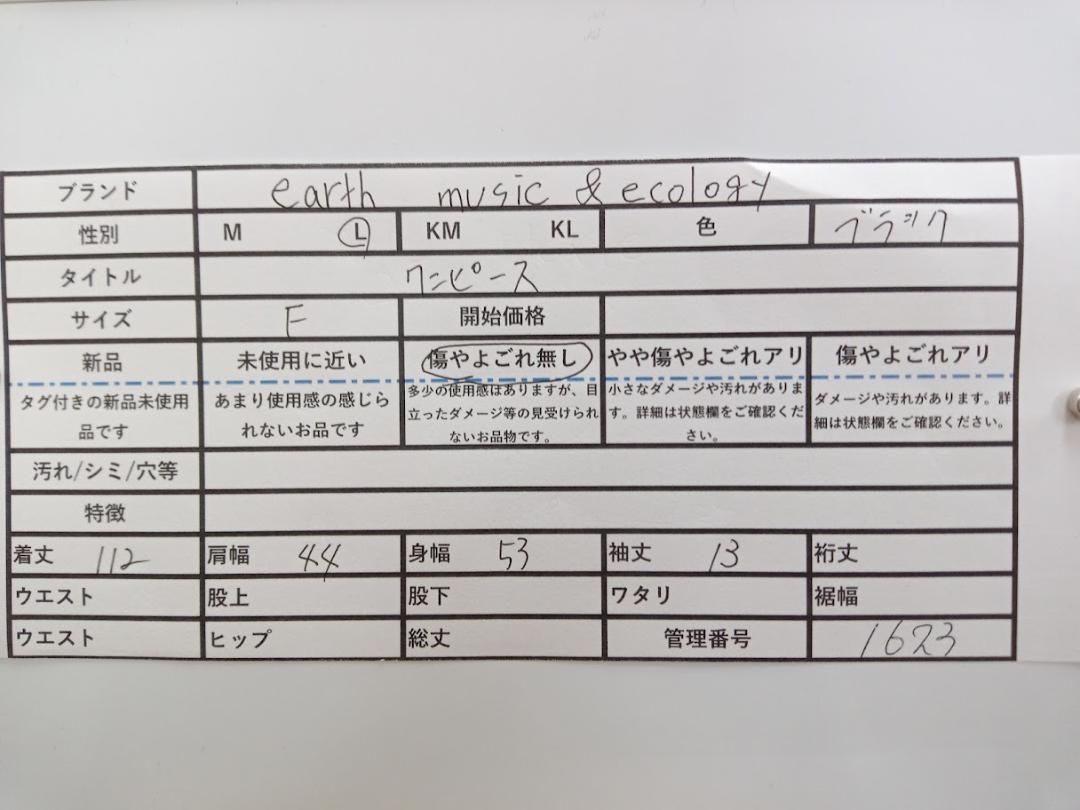 ブランド earth music & ecology
性別 M L KM KL 色 ブラック
タイトル ワンピース
サイズ F 開始価格
新品 未使用に近い 傷やよごれ無し やや傷やよごれアリ 傷やよごれアリ
タグ付きの新品未使用品です あまり使用感の感じられないお品です 多少の使用感はありますが、目立ったダメージ等の見受けられないお品物です。 小さなダメージや汚れがあります。詳細は状態欄をご確認ください。 ダメージや汚れがあります。詳細は状態欄をご確認ください。
汚れ/シミ/穴等
特徴
着丈 112 肩幅 44 身幅 53 袖丈 13 裄丈
ウエスト 股上 股下 ワタリ 裾幅
ウエスト ヒップ 総丈 管理番号 1623